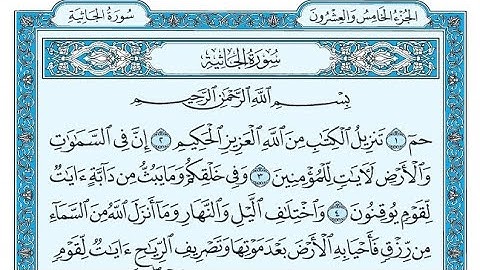 سُورَةُ الجَاثِيَةِ الجُزْءُ الخَامِسُ وَالعِشْرُونَ
سُورَةُ الجَاثِيَةِ
بِسْمِ اللَّهِ الرَّحْمَٰنِ الرَّحِيمِ
حمٓ ١ تَنزِيلُ الْكِتَابِ مِنَ اللَّهِ الْعَزِيزِ الْحَكِيمِ ٢ إِنَّ فِي السَّمَاوَاتِ
وَالْأَرْضِ لَآيَاتٍ لِّلْمُؤْمِنِينَ ٣ وَفِي خَلْقِكُمْ وَمَا يَبُثُّ مِن دَابَّةٍ ءَايَاتٌ
لِّقَوْمٍ يُوقِنُونَ ٤ وَاخْتِلَافِ الَّيْلِ وَالنَّهَارِ وَمَا أَنزَلَ اللَّهُ مِنَ السَّمَاءِ
مِن رِّزْقٍ فَأَحْيَا بِهِ الْأَرْضَ بَعْدَ مَوْتِهَا وَتَصْرِيفِ الرِّيَاحِ ءَايَاتٌ لِّقَوْمٍ